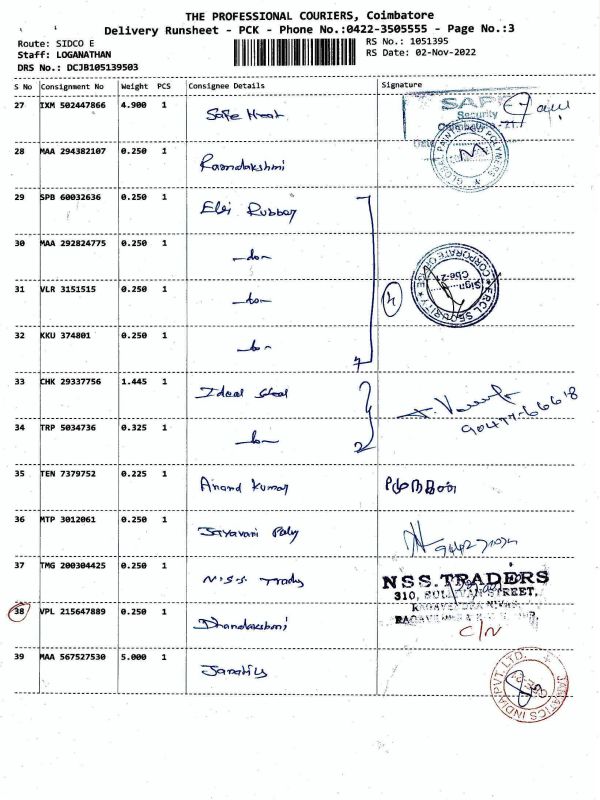 THE PROFESSIONAL COURIERS, Coimbatore
Delivery Runsheet - PCK - Phone No.:0422-3505555 - Page No.:3
Route: SIDCO E RS No.: 1051395
Staff: LOGANATHAN RS Date: 02-Nov-2022
DRS No.: DCJB105139503
S No Consignment No Weight PCS Consignee Details Signature
27 IXM 502447866 4.900 1 Safe Heat SAFE
Security
28 MAA 294382107 0.250 1 Ramdakshmi
29 SPB 60032636 0.250 1 Elgi Rubber
30 MAA 292824775 0.250 1 -do-
31 VLR 3151515 0.250 1 -do- 4
32 KKU 374801 0.250 1 -do-
33 CHK 29337756 1.445 1 Ideal Steel
34 TRP 5034736 0.325 1 -do- 2
35 TEN 7379752 0.225 1 Anand Kumar
36 MTP 3012061 0.250 1 Jayavani Poly
37 TMG 200304425 0.250 1 N.S.S. Traders NSS.TRADERS
310, SULLIVAN STREET,
38 VPL 215647889 0.250 1 Dhandakshmi
C/N
39 MAA 567527530 5.000 1 Janatics JANATICS INDIA PVT. LTD.